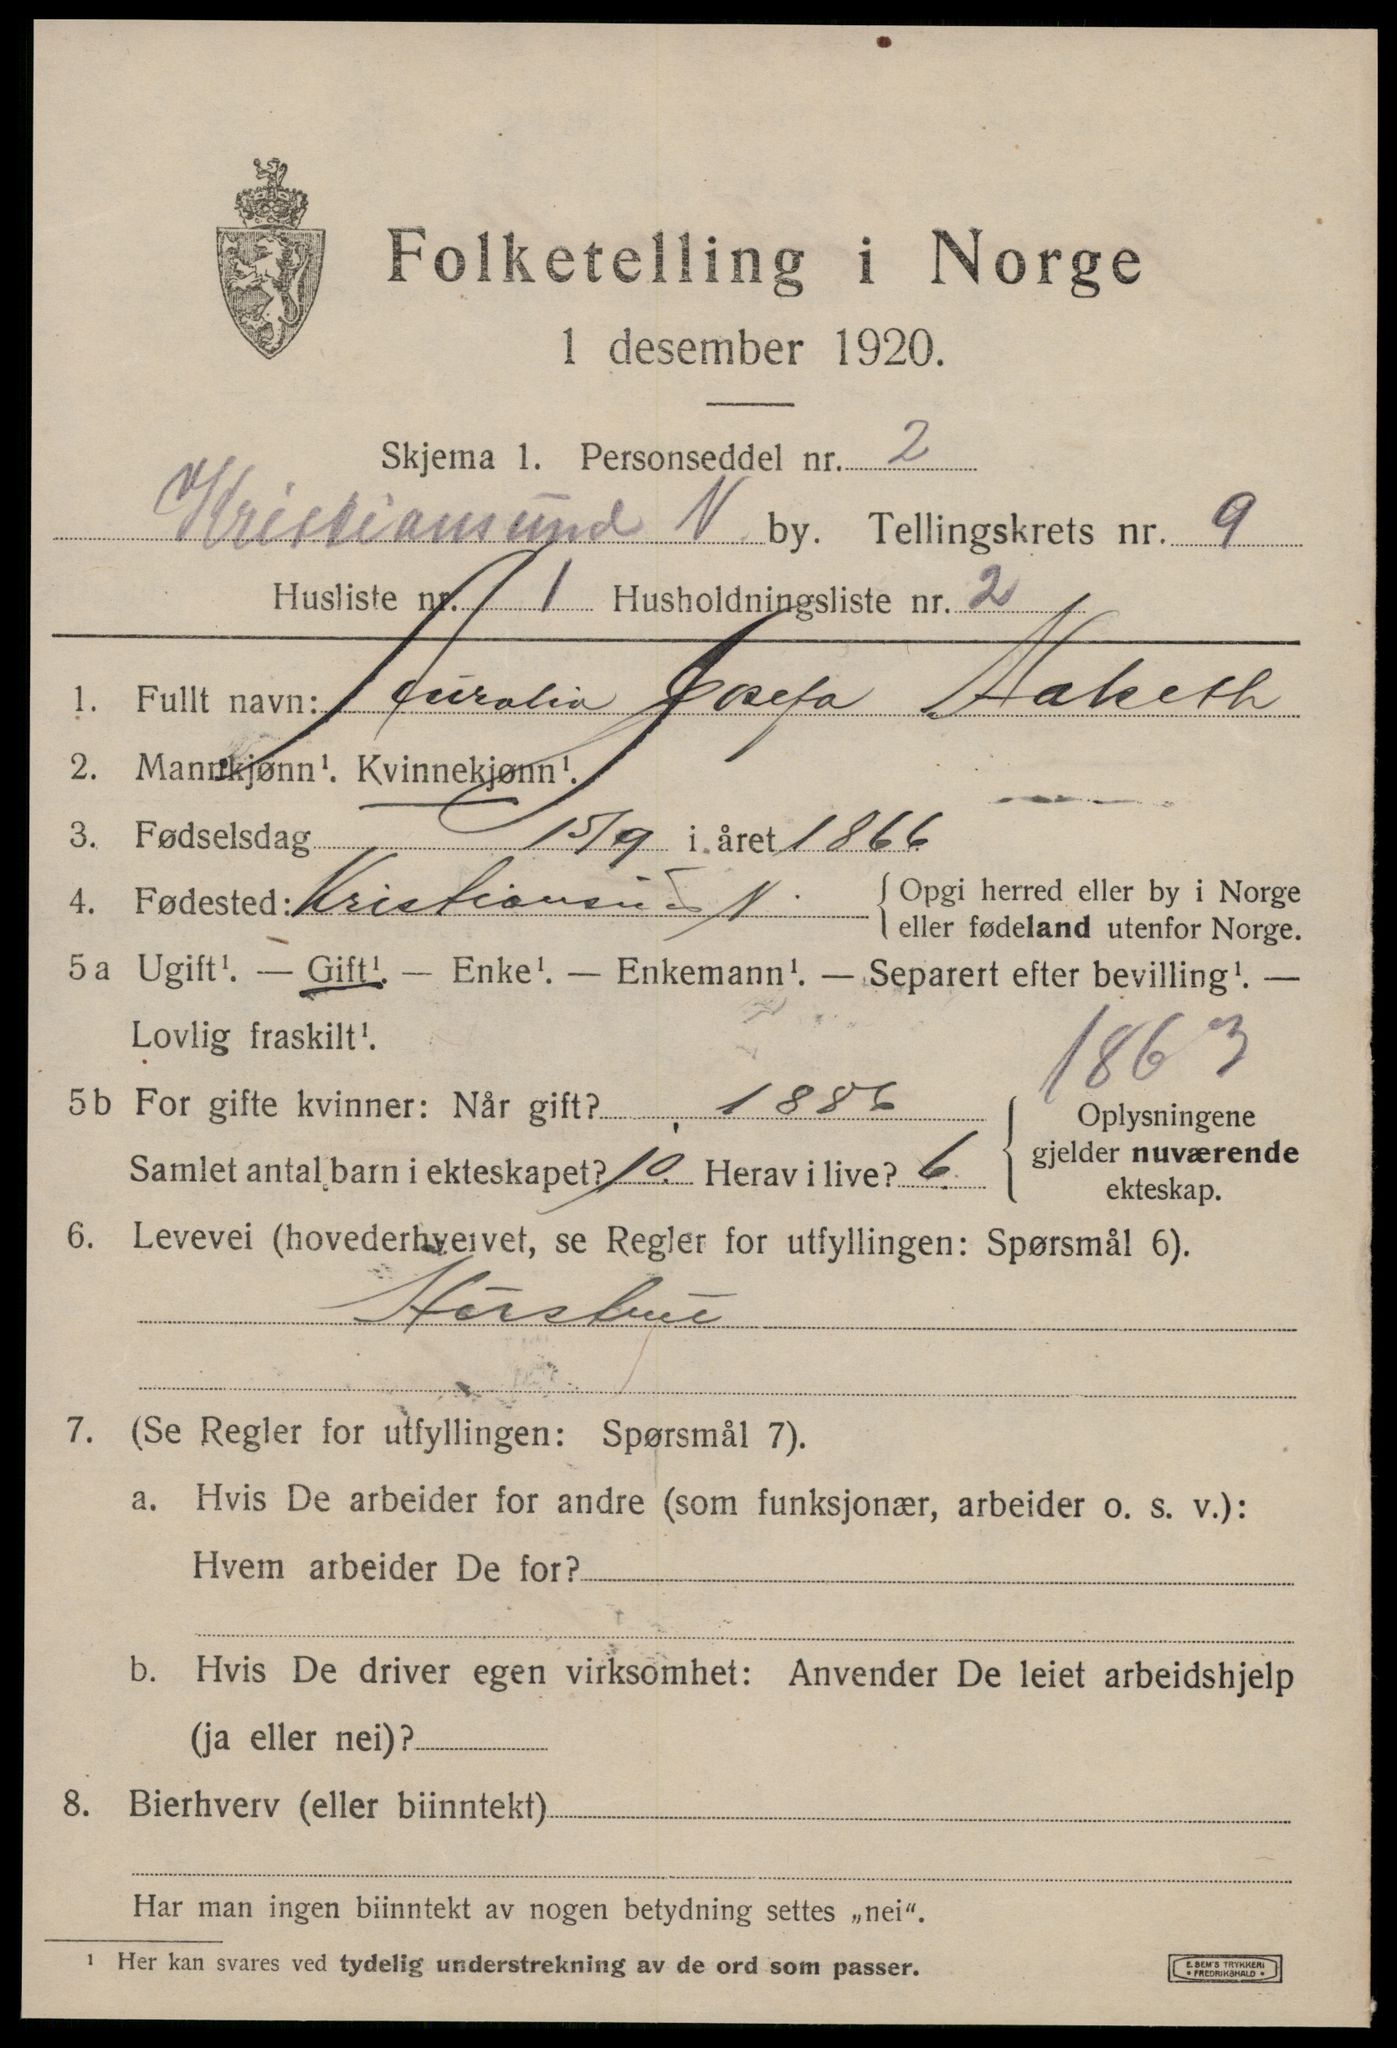 Folketelling i Norge
1 desember 1920.
Skjema 1. Personseddel nr. 2
Kristiansund N. by. Tellingskrets nr. 9
Husliste nr. 1 Husholdningsliste nr. 2
1. Fullt navn: Auralia Josefa Naketh
2. Mannkjønn¹. Kvinnekjønn¹.
3. Fødselsdag 15/9 i året 1866
4. Fødested: Kristiansund N. { Opgi herred eller by i Norge
eller fødeland utenfor Norge.
5 a Ugift¹. — Gift¹. — Enke¹. — Enkemann¹. — Separert efter bevilling¹. —
Lovlig fraskilt¹.
1863
5 b For gifte kvinner: Når gift? 1886
Samlet antal barn i ekteskapet? 10. Herav i live? 6.
{ Oplysningene
gjelder nuværende
ekteskap.
6. Levevei (hovederhvervet, se Regler for utfyllingen: Spørsmål 6).
Husstrue
7. (Se Regler for utfyllingen: Spørsmål 7).
a. Hvis De arbeider for andre (som funksjonær, arbeider o. s. v.):
Hvem arbeider De for?
b. Hvis De driver egen virksomhet: Anvender De leiet arbeidshjelp
(ja eller nei)?
8. Bierhverv (eller biinntekt)
Har man ingen biinntekt av nogen betydning settes „nei“.
¹ Her kan svares ved tydelig understrekning av de ord som passer.
E. SEM'S TRYKKERI
• FREDRIKSHALD •